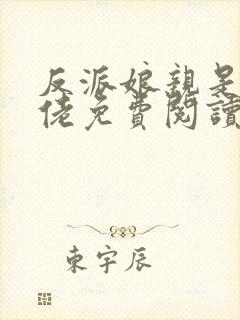 反派娘親是
佬免費閱讀
東宇辰